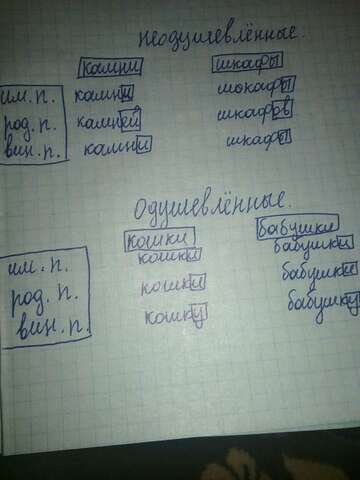 неодушевлённые.
камни шкафы
им. п. камни шокафы
род. п. камней шкафов
вин. п. камни шкафы
Одушевлённые.
кошки бабушки
им. п. кошки бабушки
род. п. кошки бабушки
вин. п. кошку бабушку